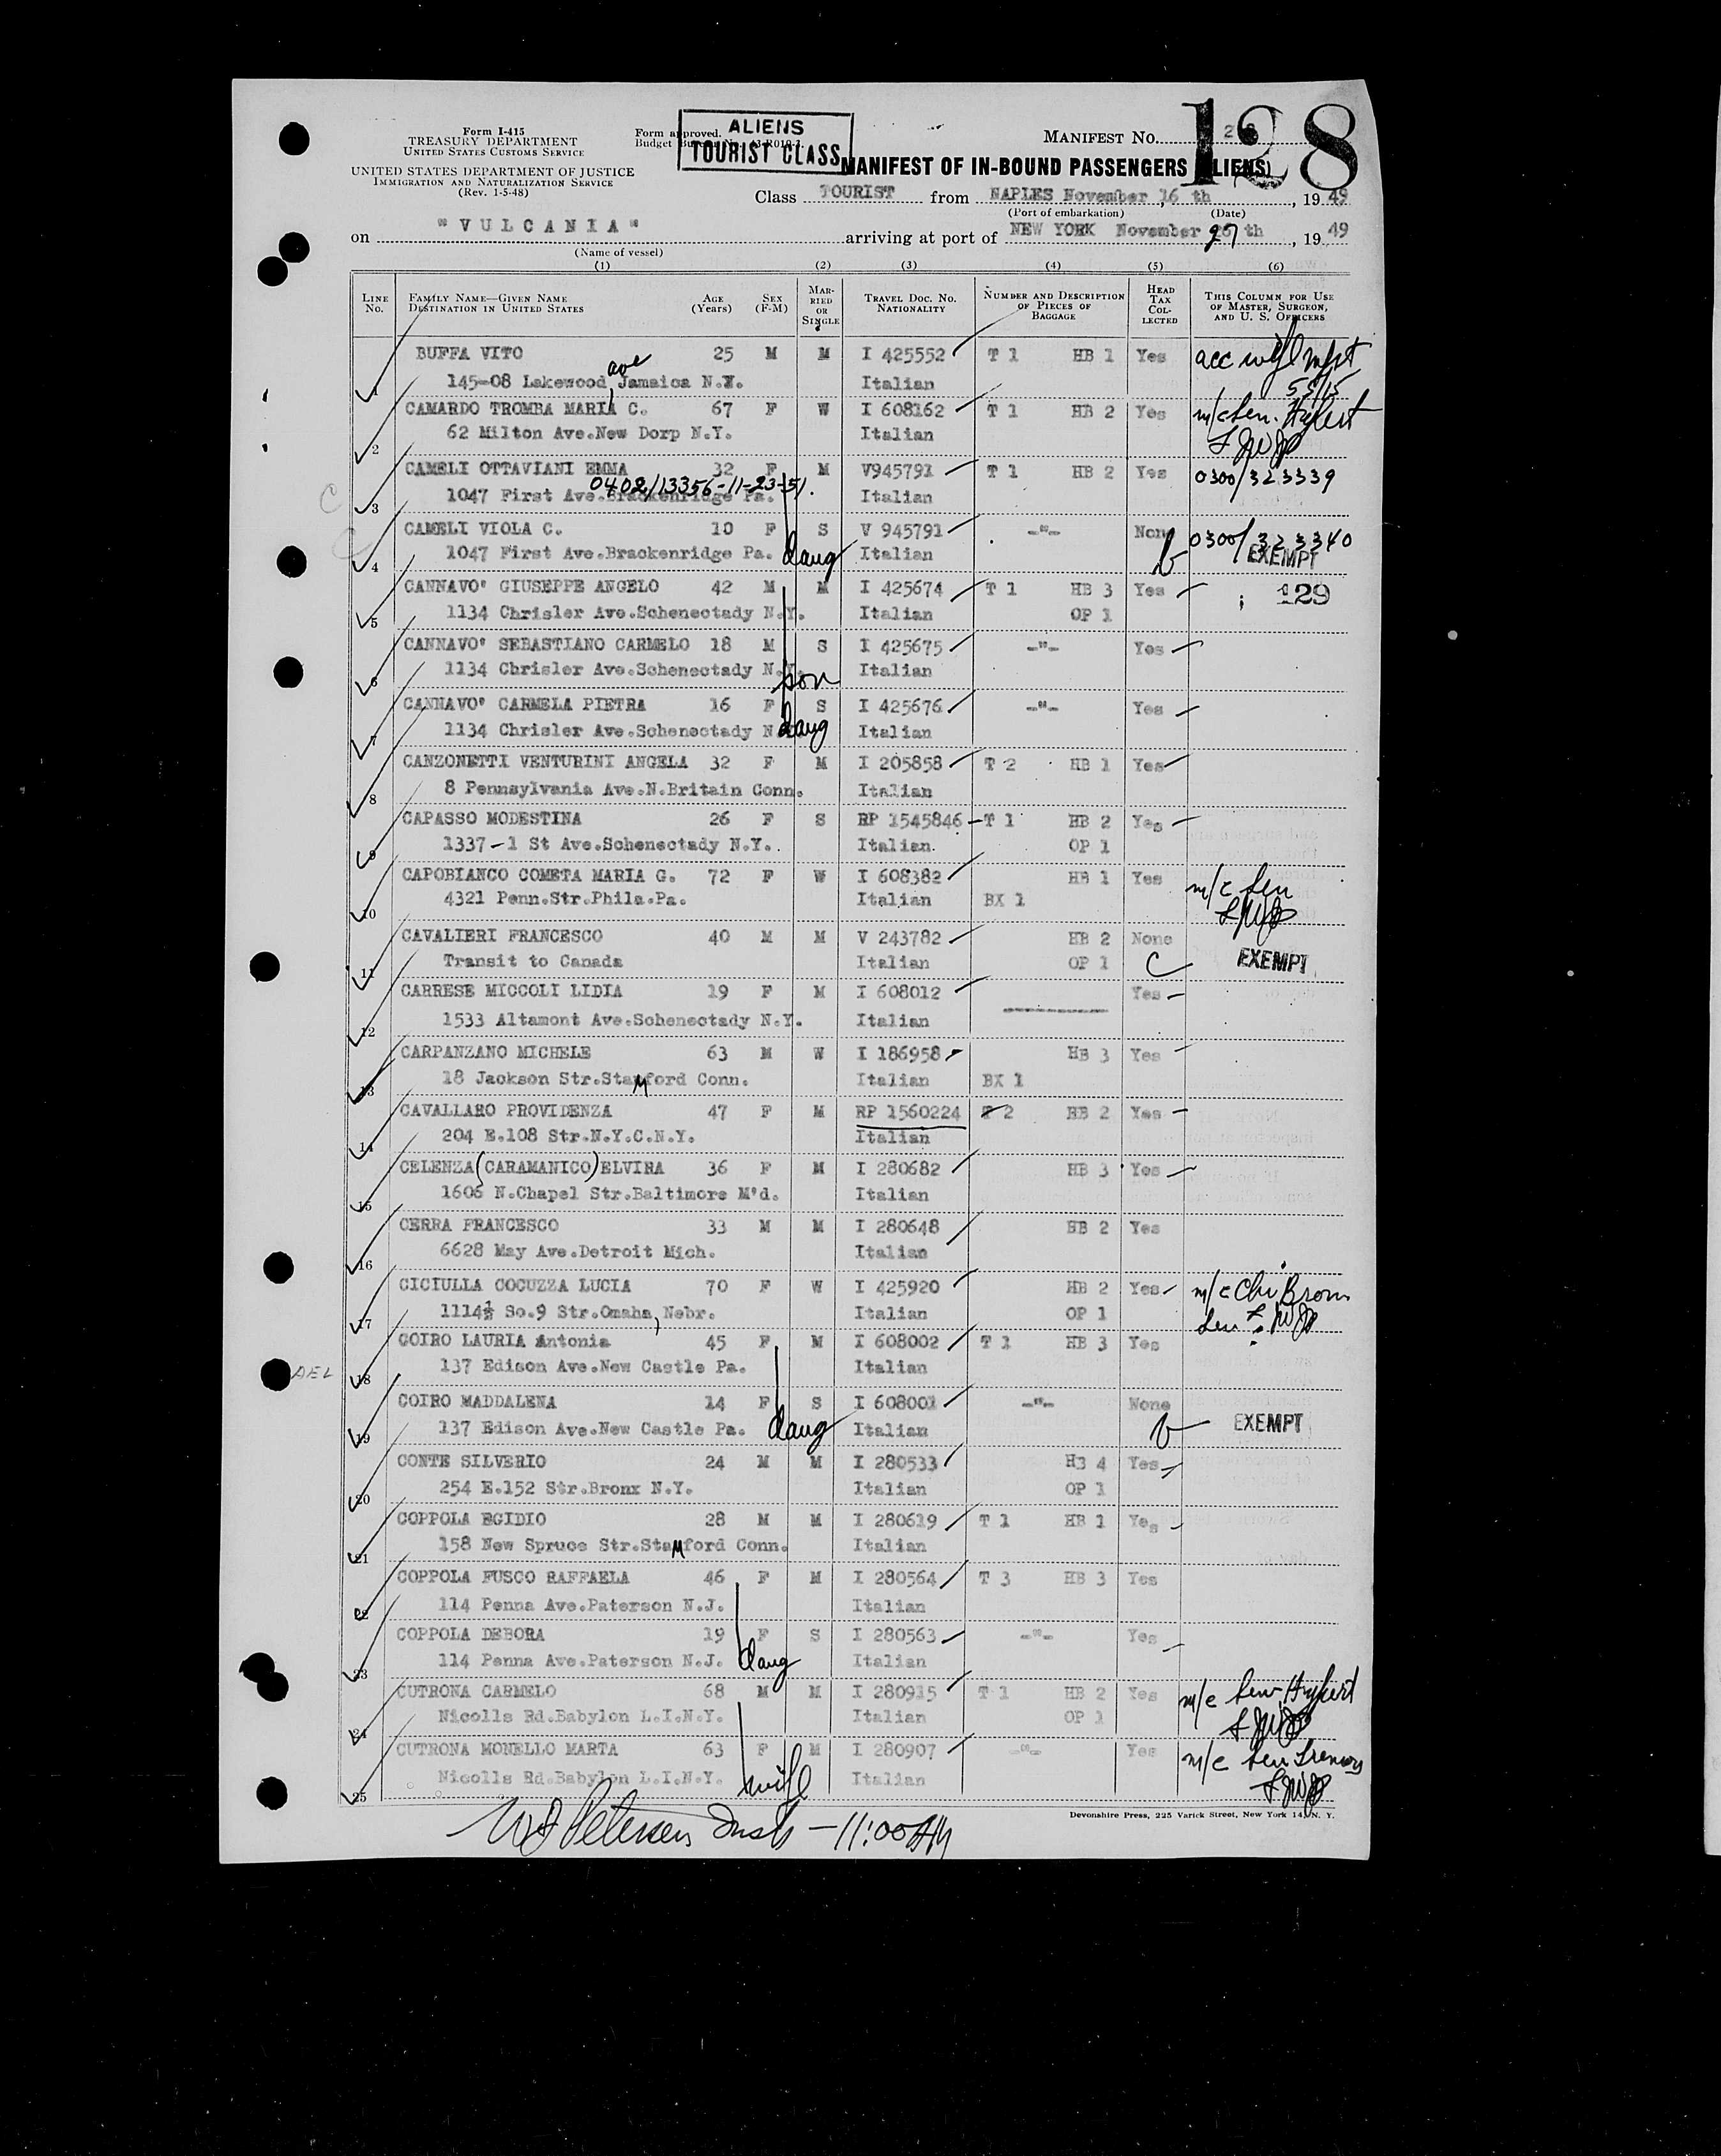 Form I-415
TREASURY DEPARTMENT
UNITED STATES CUSTOMS SERVICE
UNITED STATES DEPARTMENT OF JUSTICE
IMMIGRATION AND NATURALIZATION SERVICE
(Rev. 1-5-48)
Form approved.
Budget Bureau No. 43-R019-3.
ALIENS
TOURIST CLASS
MANIFEST NO. 128
MANIFEST OF IN-BOUND PASSENGERS (ALIENS)
Class TOURIST from NAPLES November 16 th, 1949
(Port of embarkation) (Date)
on "VULCANIA" arriving at port of NEW YORK November 27 th, 1949
(Name of vessel)
(1) (2) (3) (4) (5) (6)
LINE No. FAMILY NAME—GIVEN NAME DESTINATION IN UNITED STATES AGE (Years) SEX (F-M) MARRIED OR SINGLE TRAVEL DOC. NO. NATIONALITY NUMBER AND DESCRIPTION OF PIECES OF BAGGAGE HEAD TAX COLLECTED THIS COLUMN FOR USE OF MASTER, SURGEON, AND U. S. OFFICERS
BUFFA VITO 25 M M I 425552 T 1 HB 1 Yes acc wife mfst
1 145-08 Lakewood ave Jamaica N.Y. Italian 55/15
CAMARDO TROMBA MARIA C. 67 F W I 608162 T 1 HB 2 Yes m/c Sen.
2 62 Milton Ave.New Dorp N.Y. Italian
CAMELI OTTAVIANI EMMA 32 F M V945791 T 1 HB 2 Yes 0300/323339
0402/13356-11-23-51.
3 1047 First Ave.Brackenridge Pa. Italian
CAMELI VIOLA C. 10 F S V 945791 -"- None 0300/323340
4 1047 First Ave.Brackenridge Pa. daug Italian EXEMPT
CANNAVO' GIUSEPPE ANGELO 42 M M I 425674 T 1 HB 3 Yes 129
5 1134 Chrisler Ave.Schenectady N.Y. Italian OP 1
CANNAVO' SEBASTIANO CARMELO 18 M S I 425675 -"- Yes
6 1134 Chrisler Ave.Schenectady N.Y. son Italian
CANNAVO' CARMELA PIETRA 16 F S I 425676 -"- Yes
7 1134 Chrisler Ave.Schenectady N daug Italian
CANZONETTI VENTURINI ANGELA 32 F M I 205858 T 2 HB 1 Yes
8 8 Pennsylvania Ave.N.Britain Conn. Italian
CAPASSO MODESTINA 26 F S RP 1545846 T 1 HB 2 Yes
9 1337-1 St Ave.Schenectady N.Y. Italian. OP 1
CAPOBIANCO COMETA MARIA G. 72 F W I 608382 HB 1 Yes m/c Sen
10 4321 Penn.Str.Phila.Pa. Italian BX 1
CAVALIERI FRANCESCO 40 M M V 243782 HB 2 None
11 Transit to Canada Italian OP 1 C EXEMPT
CARRESE MICCOLI LIDIA 19 F M I 608012 Yes
12 1533 Altamont Ave.Schenectady N.Y. Italian
CARPANZANO MICHELE 63 M W I 186958 HB 3 Yes
13 18 Jackson Str.StaMford Conn. Italian BX 1
CAVALLARO PROVIDENZA 47 F M RP 1560224 T 2 HB 2 Yes
14 204 E.108 Str.N.Y.C.N.Y. Italian
CELENZA (CARAMANICO) ELVIRA 36 F M I 280682 HB 3 Yes
15 1606 N.Chapel Str.Baltimore M'd. Italian
CERRA FRANCESCO 33 M M I 280648 HB 2 Yes
16 6628 May Ave.Detroit Mich. Italian
CICIULLA COCUZZA LUCIA 70 F W I 425920 HB 2 Yes m/c Chr Bron
17 1114½ So.9 Str.Omaha, Nebr. Italian OP 1 Sen
COIRO LAURIA Antonia 45 F M I 608002 T 1 HB 3 Yes
AEL 18 137 Edison Ave.New Castle Pa. Italian
COIRO MADDALENA 14 F S I 608001 -"- None
19 137 Edison Ave.New Castle Pa. daug Italian EXEMPT
CONTE SILVERIO 24 M M I 280533 HB 4 Yes
20 254 E.152 Str.Bronx N.Y. Italian OP 1
COPPOLA EGIDIO 28 M M I 280619 T 1 HB 1 Yes
21 158 New Spruce Str.StaMford Conn. Italian
COPPOLA FUSCO RAFFAELA 46 F M I 280564 T 3 HB 3 Yes
22 114 Penna Ave.Paterson N.J. Italian
COPPOLA DEBORA 19 F S I 280563 -"- Yes
23 114 Penna Ave.Paterson N.J. daug Italian
CUTRONA CARMELO 68 M M I 280915 T 1 HB 2 Yes m/c Sen
24 Nicolls Rd.Babylon L.I.N.Y. Italian OP 1
CUTRONA MONELLO MARTA 63 F M I 280907 -"- Yes m/c Sen
25 Nicolls Rd.Babylon L.I.N.Y. wife Italian
Devonshire Press, 225 Varick Street, New York 14, N. Y.
Petersen Insp — 11:00 AM